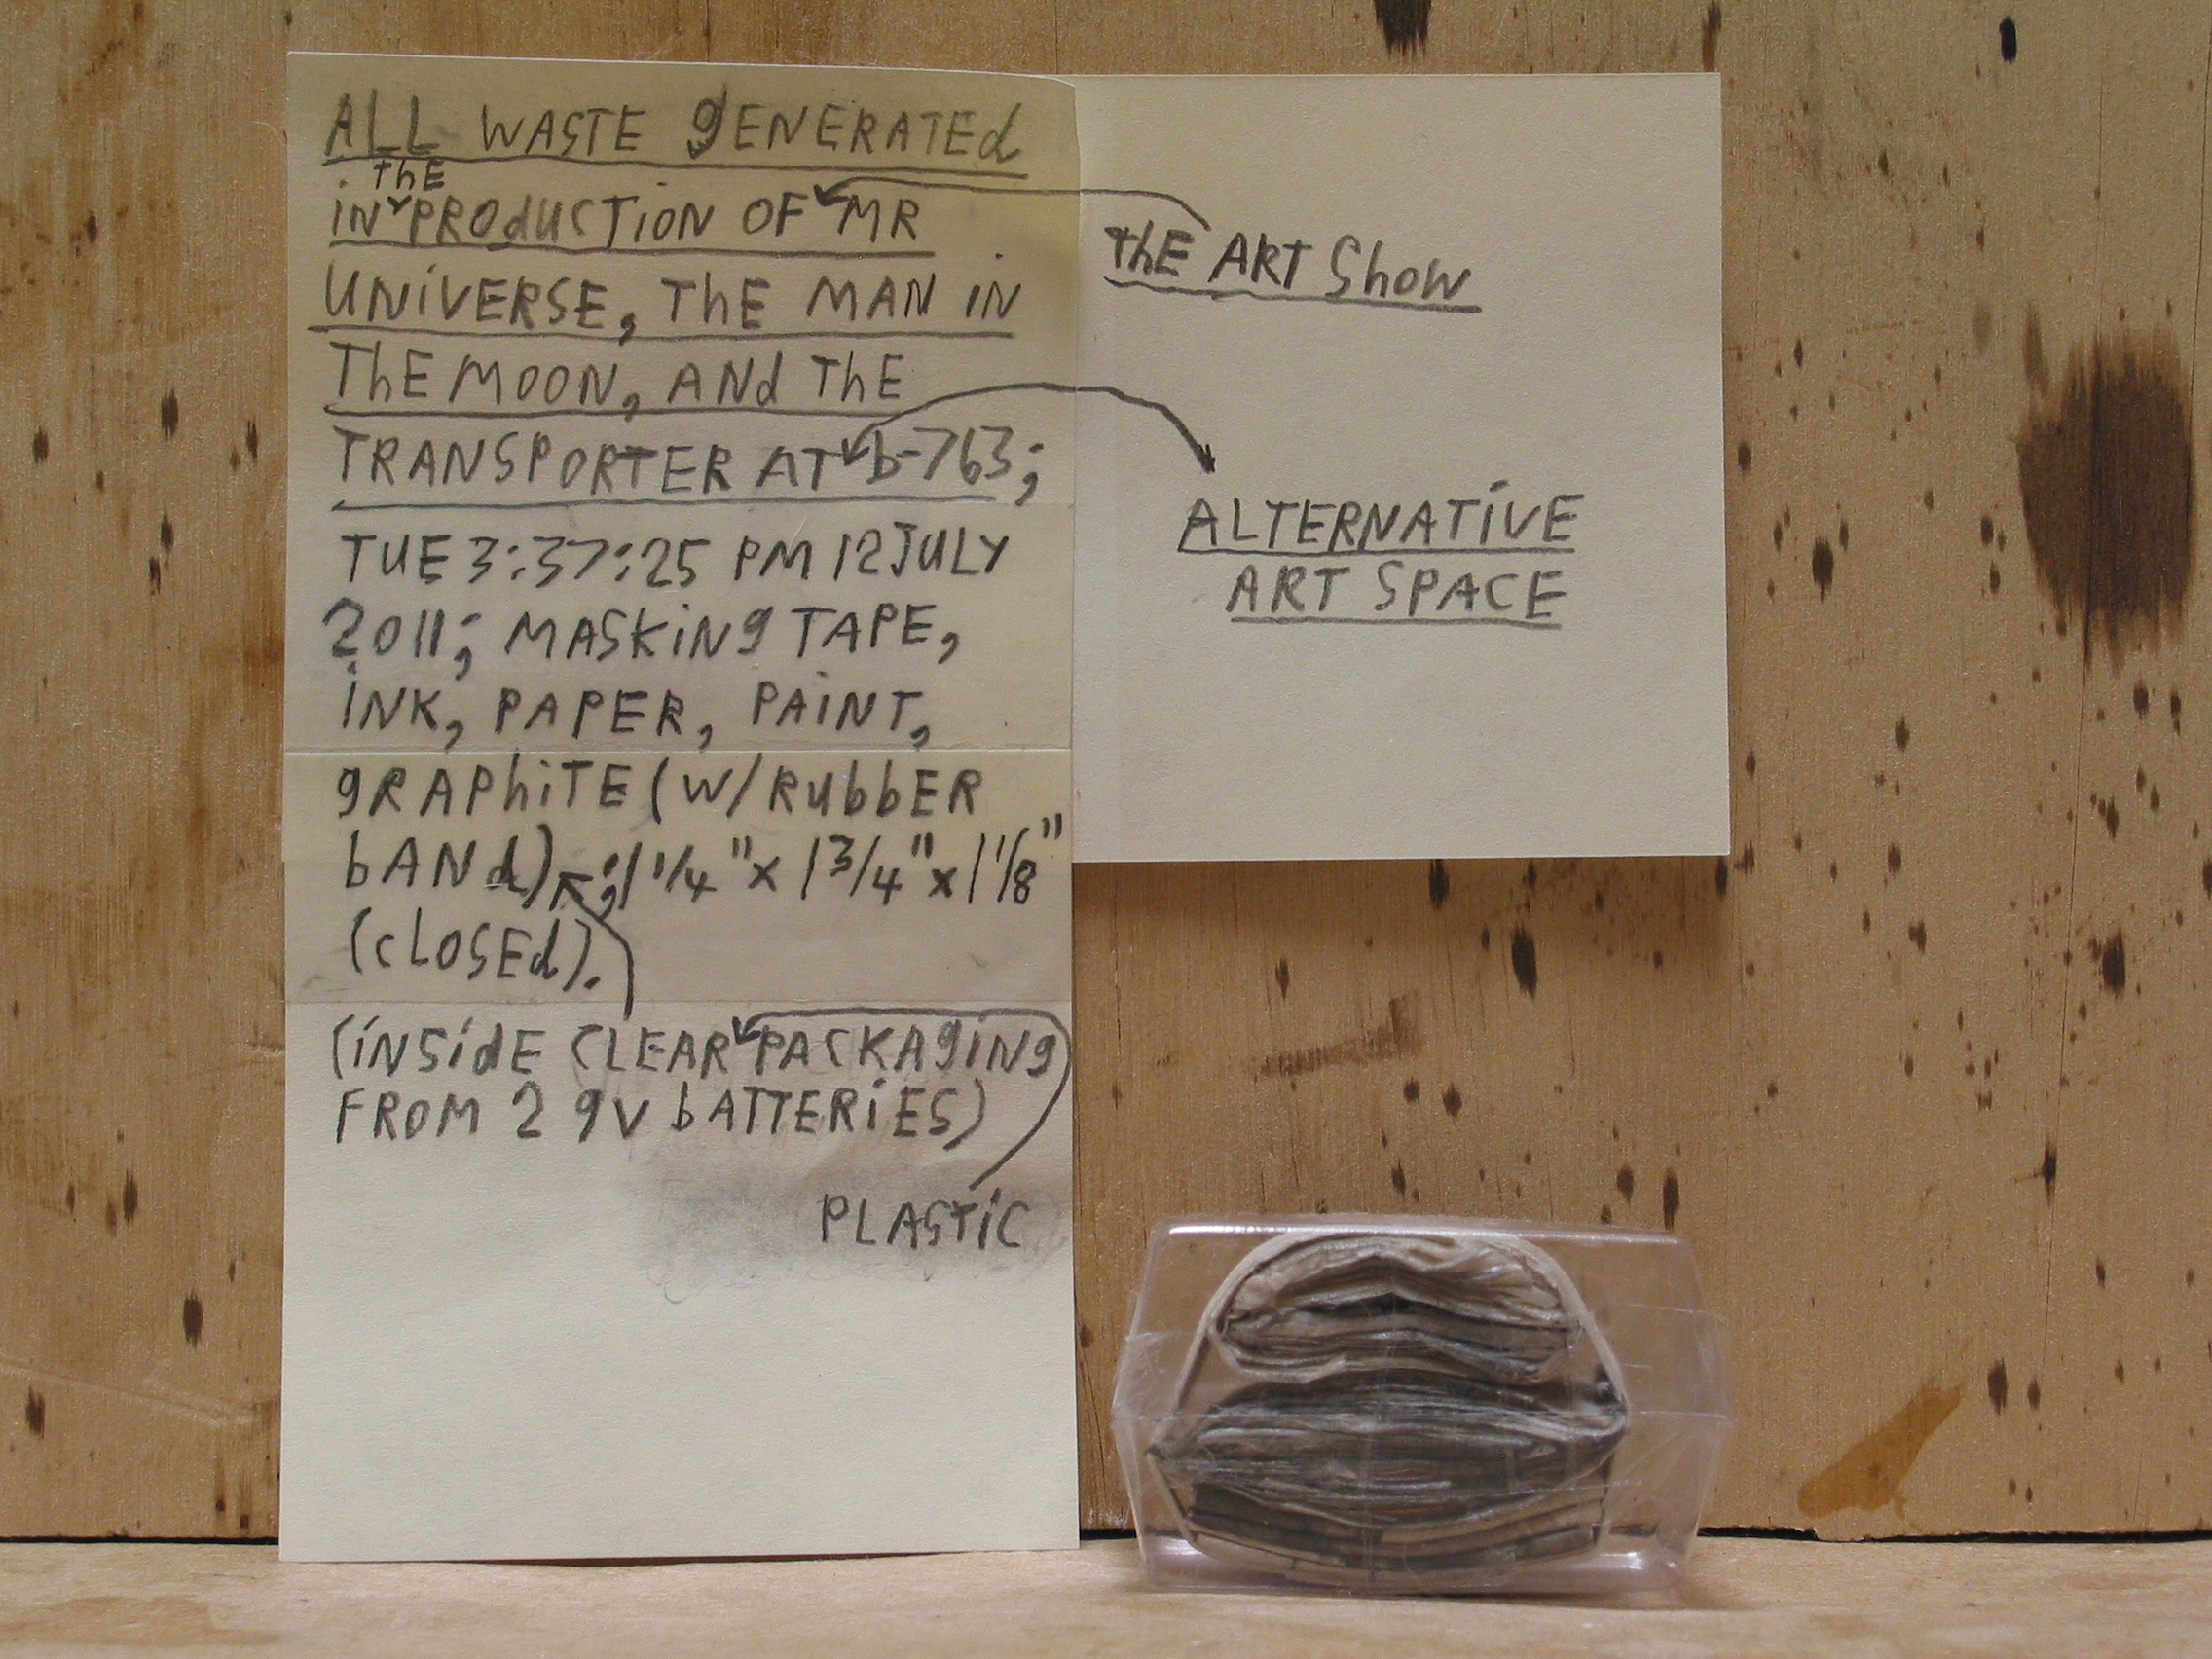 ALL WASTE gENERATEd
ThE
iN PROdUCTiON OF MR
UNiVERSE, ThE MAN iN
ThE MOON, ANd ThE
TRANSPORTER AT b-763;
TUE 3:37:25 PM 12 JULY
2011; MASKiNg TAPE,
iNK, PAPER, PAiNT,
gRAPhiTE (W/ RubbER
bANd) ; 1 1/4" x 1 3/4" x 1 1/8"
(cLOSEd).
(iNSidE CLEAR PACKAgiNg
FROM 2 9V bATTERiES)
PLASTiC
ThE ART ShOW
ALTERNATiVE
ART SPACE